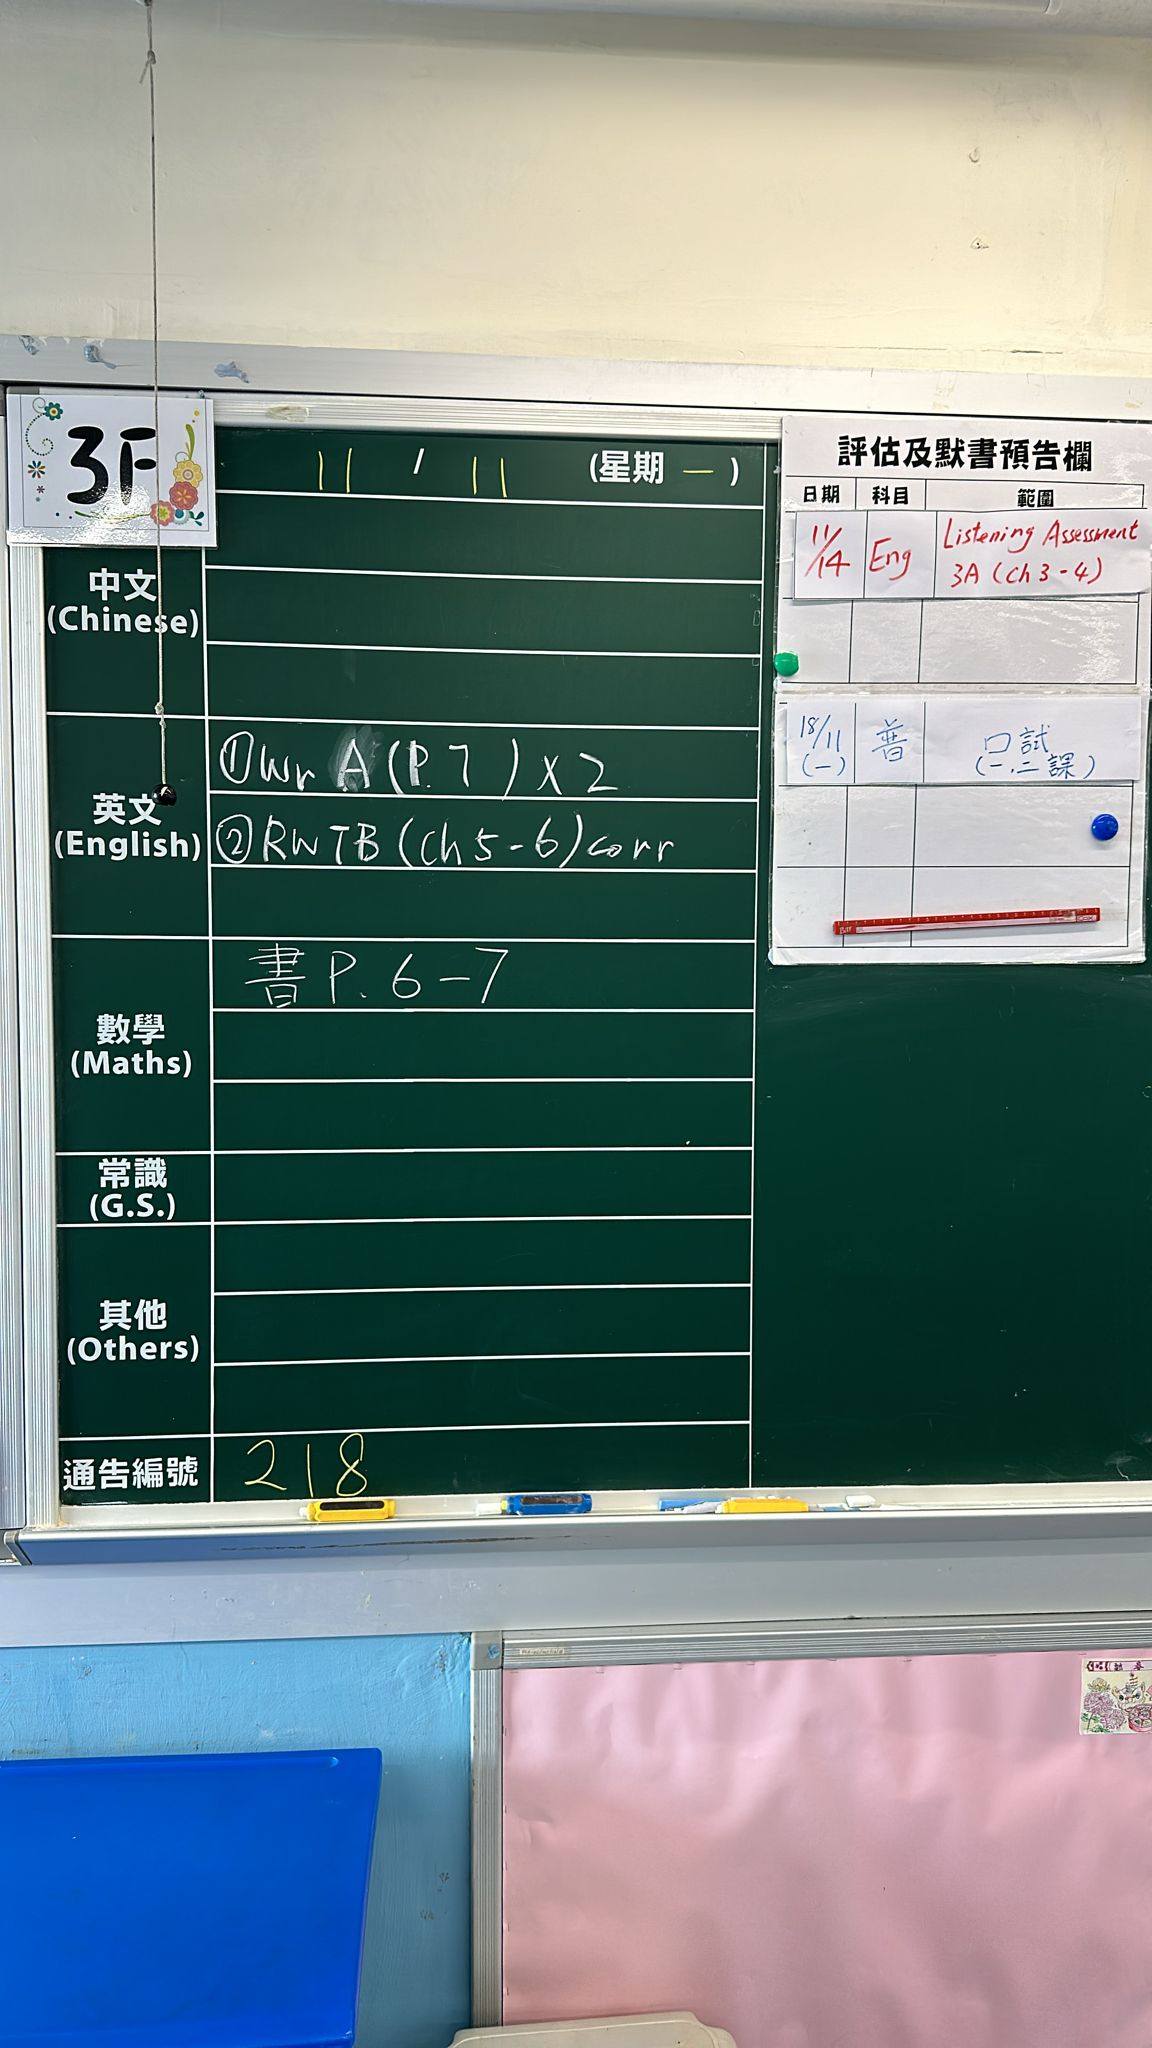 3F
11 / 11 (星期 一 )
中文
(Chinese)
英文
(English)
①Wr A (P. 7 ) x 2
②RWTB (Ch 5 - 6) corr
數學
(Maths)
書 P. 6 - 7
常識
(G.S.)
其他
(Others)
通告編號
218
評估及默書預告欄
日期 科目 範圍
11/14 Eng Listening Assessment
3A (Ch 3 - 4)
18/11 普 口試
(一) (一,二課)